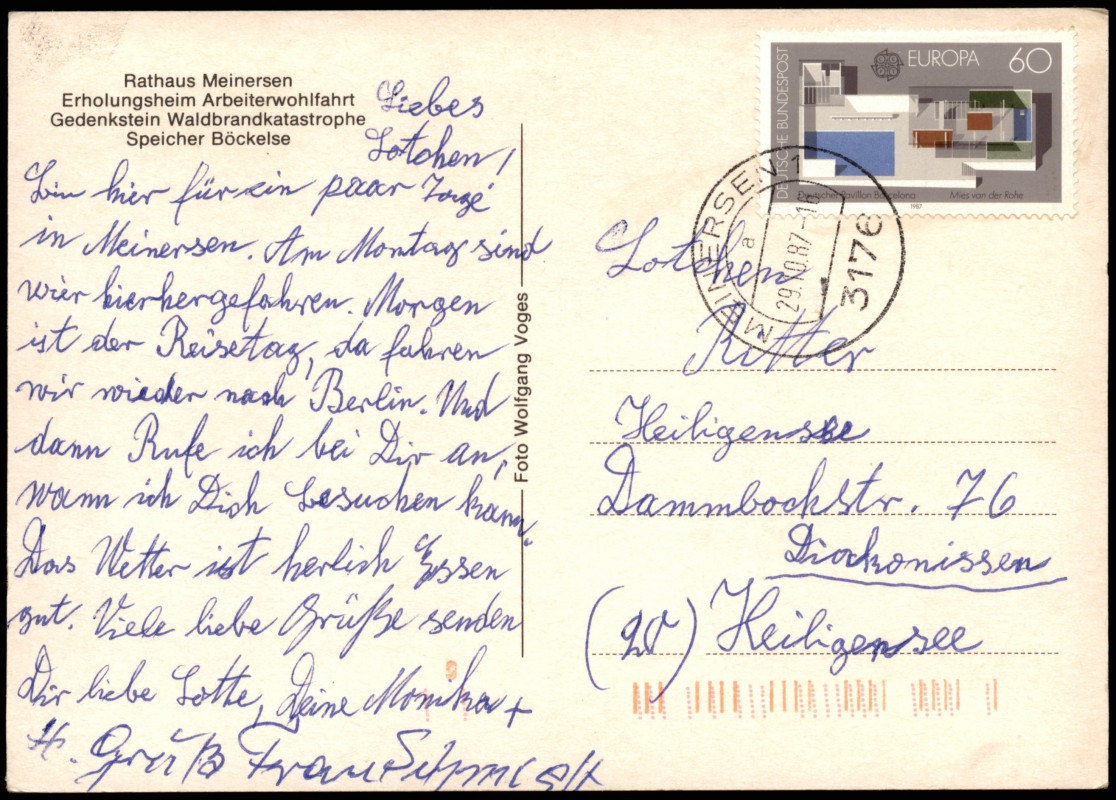 Rathaus Meinersen
Erholungsheim Arbeiterwohlfahrt
Gedenkstein Waldbrandkatastrophe
Speicher Böckelse
Liebes
Lotchen,
bin hier für ein paar Tage
in Meinersen. Am Montag sind
wier hierhergefahren. Morgen
ist der Reisetag, da fahren
wir wieder nach Berlin. Und
dann Rufe ich bei Dir an,
wann ich Dich besuchen kann.
Das Wetter ist herlich Essen
gut. Viele liebe Grüße senden
Dir liebe Lotte, Deine Monika +
H. Gruß Frau
Foto Wolfgang Voges
DEUTSCHE BUNDESPOST
EUROPA 60
Deutscher Pavillon Barcelona Mies van der Rohe
1987
MEINERSEN 1
a
29.10.87
3176
Lotchen
Ritter
Heiligensee
Dammbockstr. 76
Diakonissen
Heiligensee